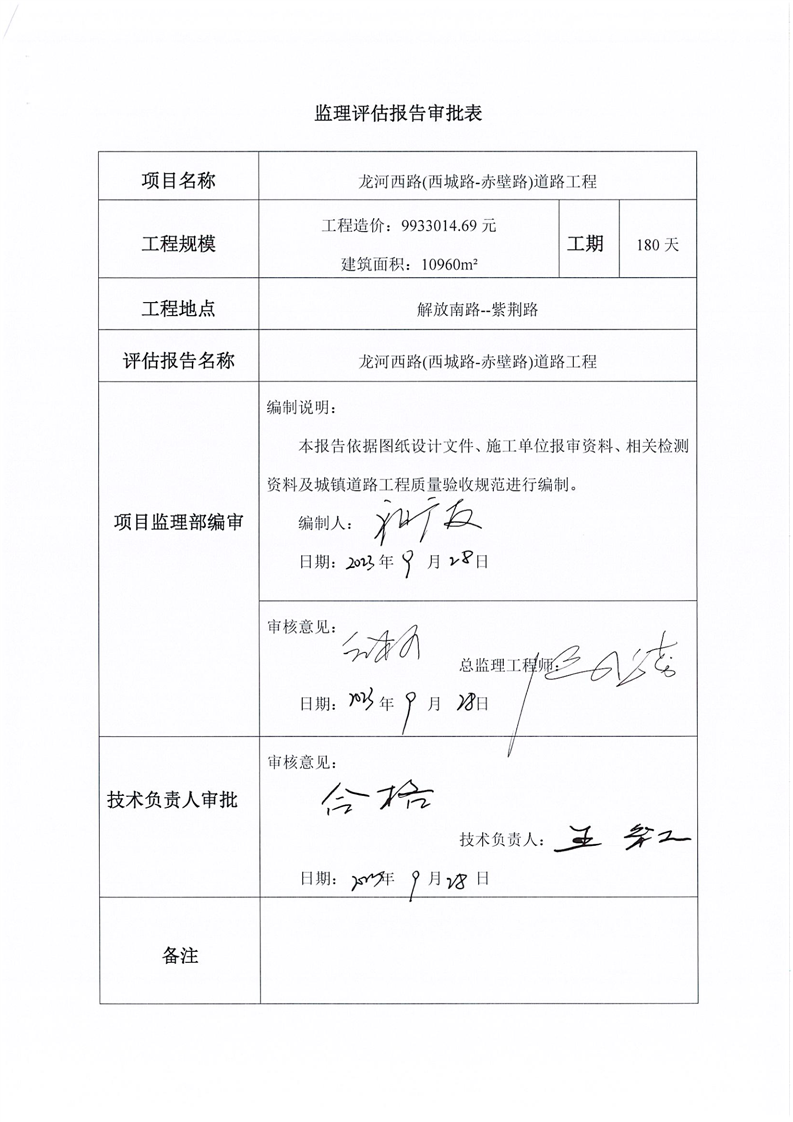 监理评估报告审批表
项目名称
龙河西路(西城路-赤壁路)道路工程
工程规模
工程造价：9933014.69 元
建筑面积：10960m²
工期
180 天
工程地点
解放南路--紫荆路
评估报告名称
龙河西路(西城路-赤壁路)道路工程
项目监理部编审
编制说明：
本报告依据图纸设计文件、施工单位报审资料、相关检测
资料及城镇道路工程质量验收规范进行编制。
编制人：
日期：2023年 9 月 28日
审核意见：
总监理工程师：
日期：2023年 9 月 28日
技术负责人审批
审核意见：
合格
技术负责人：王
日期：年 9 月 28 日
备注